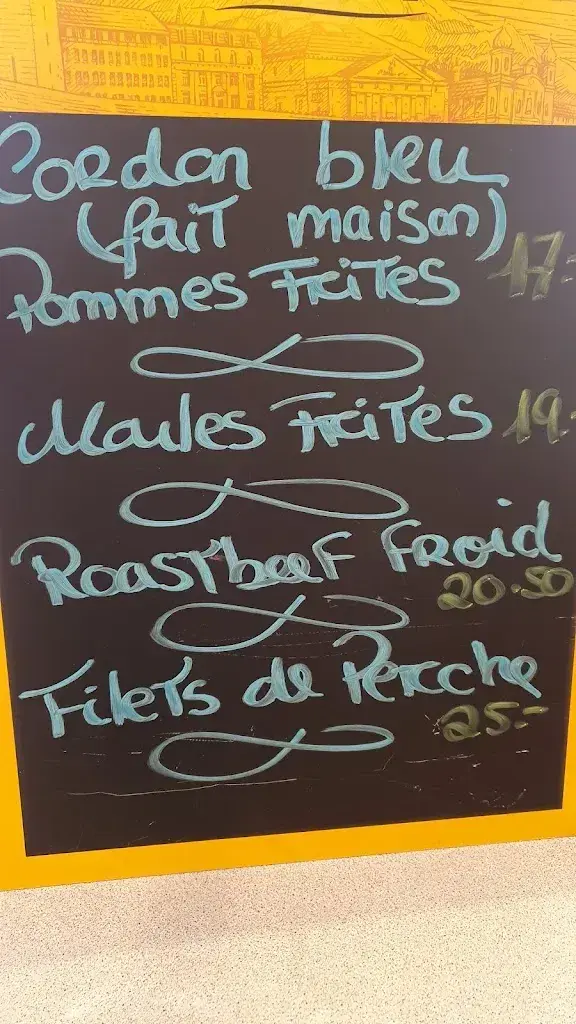 Cordon bleu
(fait maison)
Pommes Frites 17.-
Moules Frites 19.-
Roastbeef froid
20.50
Filets de Perche
25.-